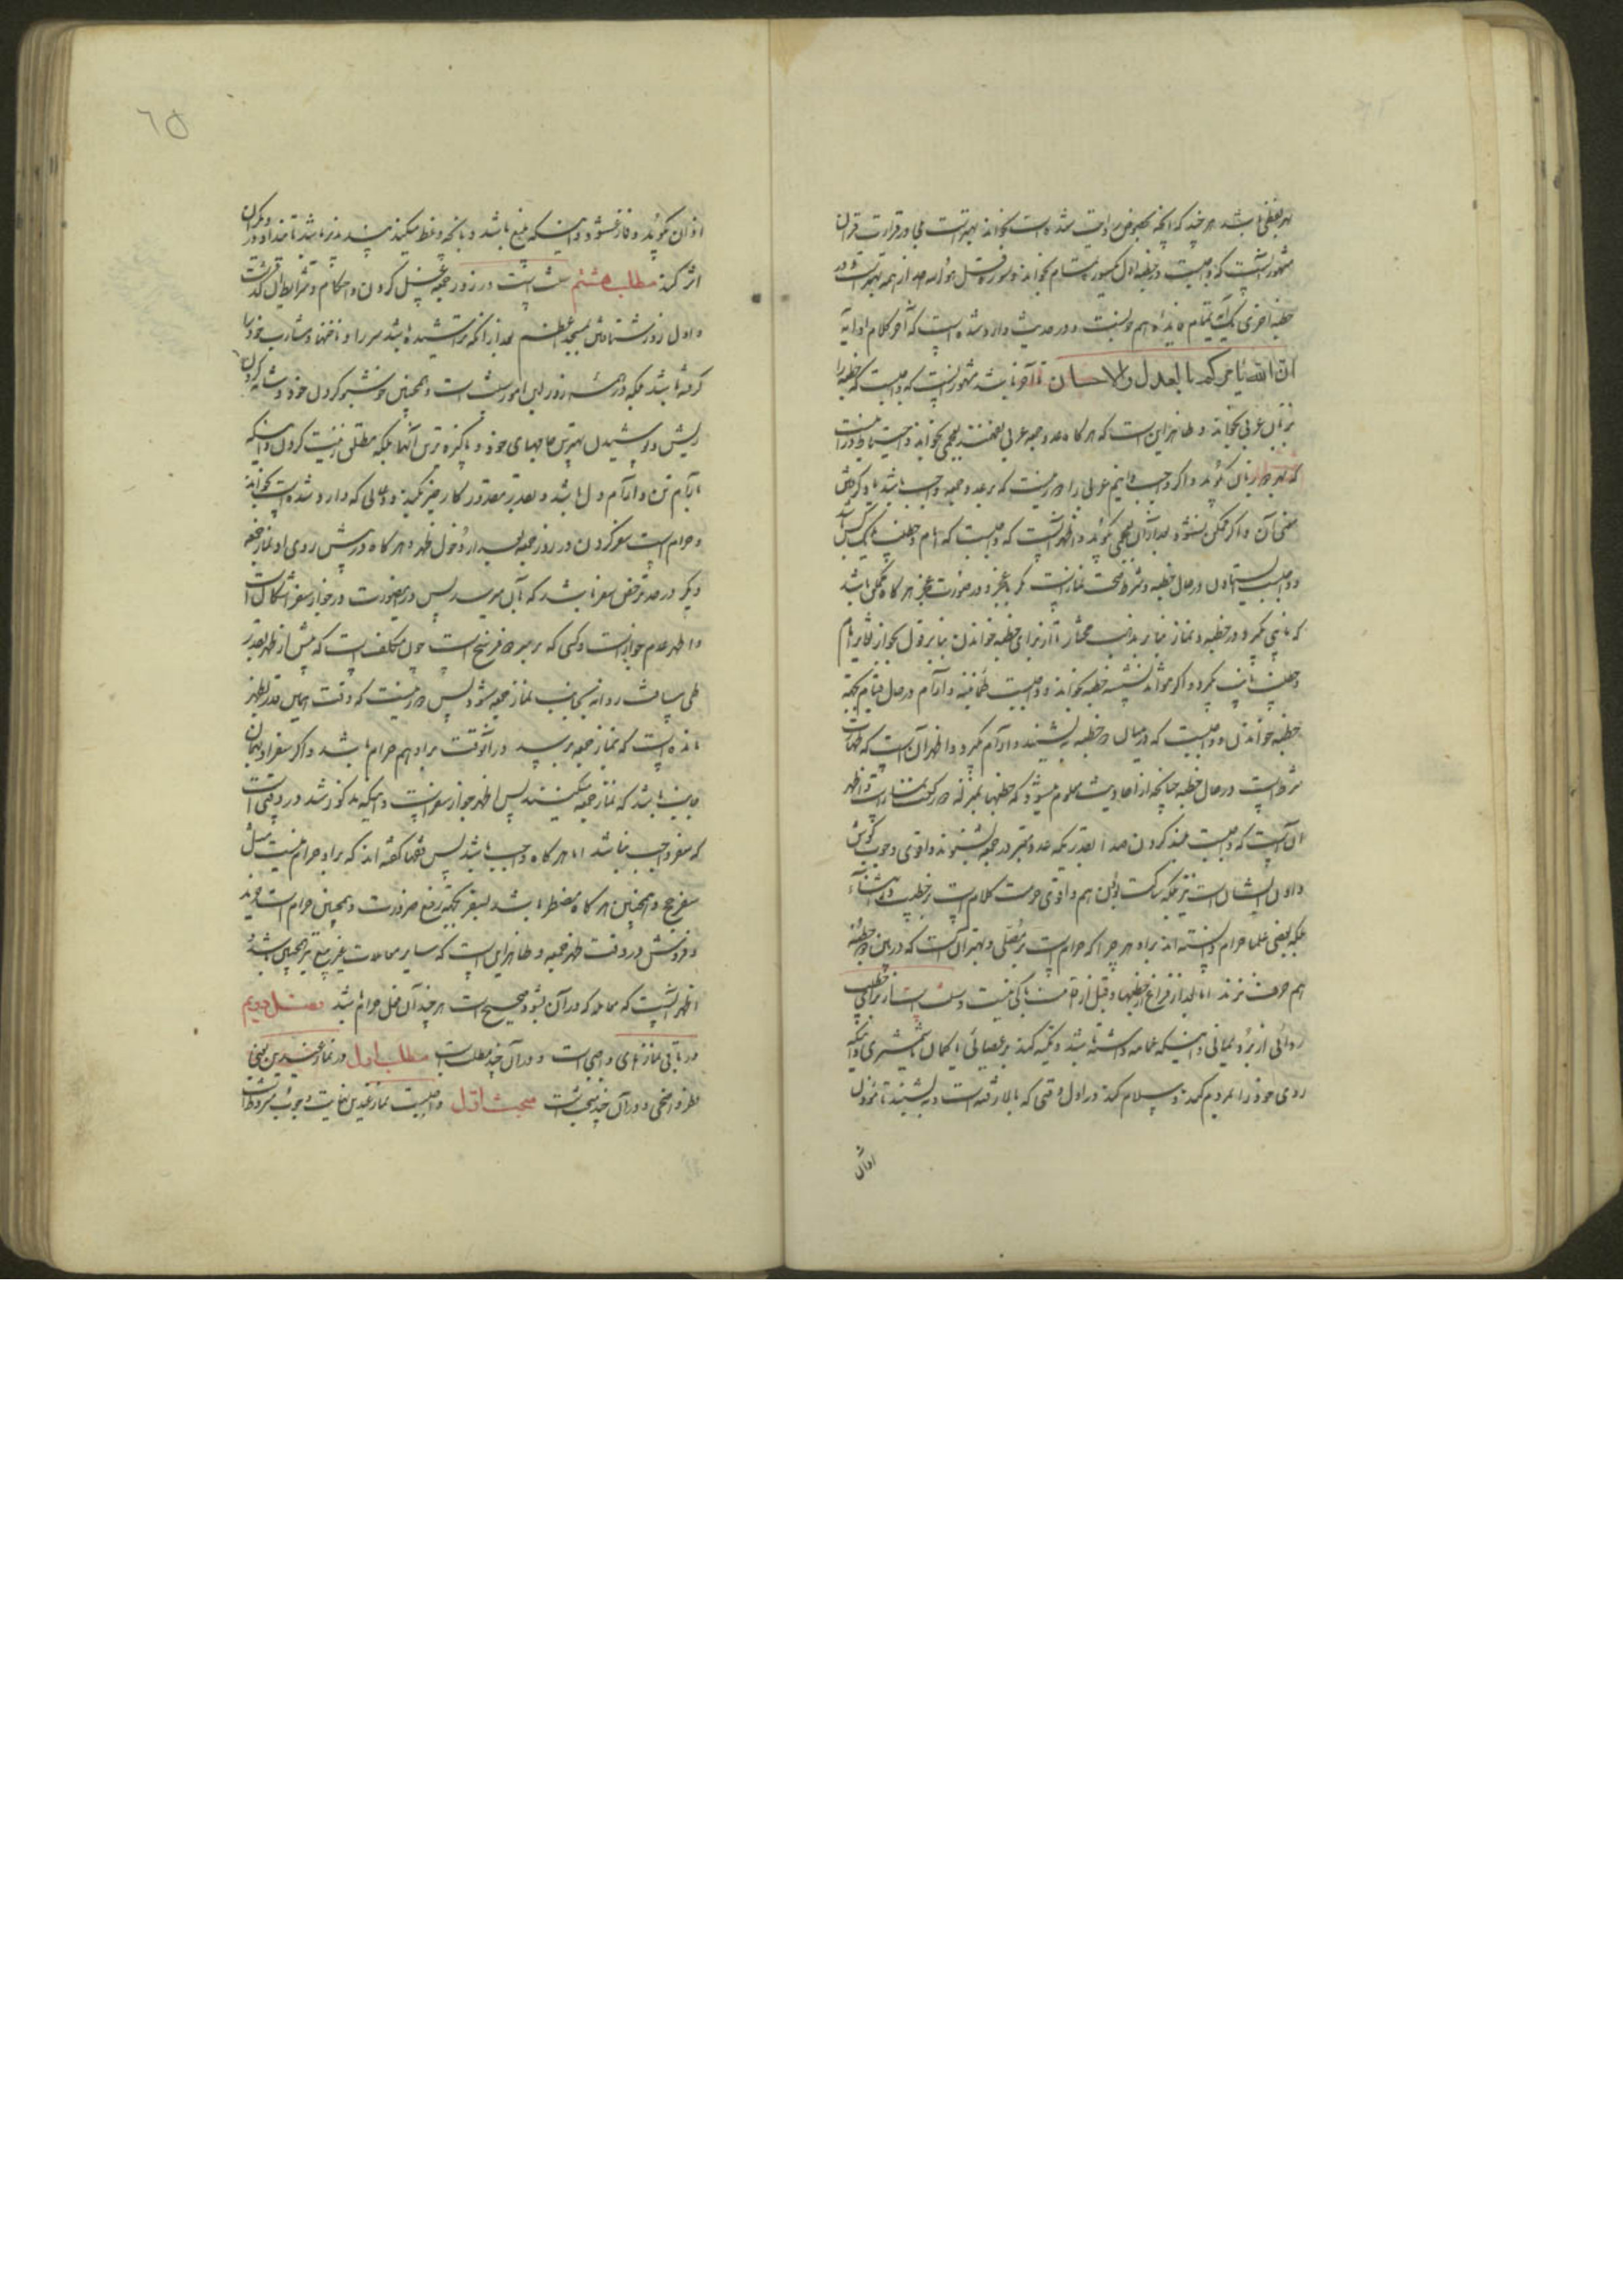 بهر لفظی باشد هر چند که آنچه بخصوص روایت شده است بخواند بهتر است و در قرائت قران
مشهور آنست که واجبست در خطبه اول یکسوره تمام بخواند و سوره قل هو الله احد از همه بهتر است و در
خطبه آخری یک آیه تمام فایده هم خوبست و در حدیث وارد شده است که آخر کلام او آیه
ان الله یأمرکم بالعدل والاحسان تا آخر باشد مشهور آنست که واجبست که خطبه را
بزبان عربی بخواند و ظاهر این است که هر گاه عدد جمعه عربی نفهمند بعجمی بخواند و احتیاط در آنست
که بهر دو زبان بگوید و اگر واجب دانیم عربی را دور نیست که بر عدد جمعه واجب باشد یاد گرفتن
معنی آن و اگر ممکن نشود بعد از آن بعجمی بگوید و اظهر آنست که واجبست که امام و خطیب یک کس باشد
و واجبست ایستادن در حال خطبه و شرط صحت نماز است مگر با عجز و در صورت عجز هر گاه ممکن باشد
که نایبی بگیرد در خطبه و نماز بنا بر مذهب مختار یا از برای خطبه خواندن بنا بر قول بجواز تغایر امام
و خطیب نایب بگیرد و اگر نتواند نشسته خطبه بخواند و واجبست طمأنینه و آرام در حال قیام بجهة
خطبه خواندن و واجبست که در میان دو خطبه بنشیند و آرام بگیرد و اظهر آن است که طهارت
شرط است در حال خطبه چنانچه از احادیث معلوم میشود که خطبها بمنزله دو رکعت نماز است و اظهر
آن است که واجبست بلند کردن صدا بقدریکه عدد معتبر در جمعه بشنوند و اقوی وجوب گوش
دادن ایشان است نیز بلکه ساکت بودن هم و اقوی حرمت کلام است بر خطیب در اثناء
بلکه بعضی علما حرام دانسته اند براو هر چرا که حرام است بر مصلی و بهتر آن است که در بین دو خطبه
هم حرف نزند اما بعد از فراغ از خطبها و قبل از اقامت باکی نیست و سنت است از برای خطیب
ردائی از برد یمانی و اینکه عمامه داشته باشد و تکیه کند بر عصائی یا کمان یا شمشیری و اینکه
روی خود را بمردم کند و سلام کند در اول وقتی که بالا رفته است و بنشیند تا مؤذن
اذان
٦٥
اذان بگوید و فارغ شود و اینکه بلیغ باشد و بآنچه وعظ میکند پند پذیر باشد تا پند او در دیگران
اثر کند مطلب هشتم سنت است در روز جمعه غسل کردن و احکام و شرایط آن گذشت
و اول روز شتافتن بمسجد اعظم بعد از آنکه تراشیده باشد سر را و ناخنها و شارب خود را
گرفته باشد بلکه در همه روز این امور سنت است و همچنین خوشبو کردن خود و شانه کردن
ریش و پوشیدن بهترین جامهای خود و پاکیزه ترین آنها بلکه مطلق زینت کردن و اینکه
بآرام تن و آرام دل باشد و بقدر مقدور کار خیر بکند و دعائی که وارد شده است بخواند
و حرام است سفر کردن در روز جمعه بعد از دخول ظهر و هر گاه در پیش روی او نماز جمعه
دیگر در حد ترخص سفر باشد که بآن میرسد پس در اینصورت در جواز سفر اشکال است
و اظهر عدم جواز است و کسی که بر سر دو فرسخ است چون مکلف است که پیش از ظهر بقدر
طی مسافت روانه بجانب نماز جمعه شود پس دور نیست که وقت همین قدر بظهر
مانده است که بنماز جمعه برسد در آنوقت براو هم حرام باشد و اگر سفر او بهمان
جانب باشد که نماز جمعه میکنند پس اظهر جواز سفر است و اینکه مذکور شد در وقتی است
که سفر واجب نباشد اما هر گاه واجب باشد پس فقها گفته اند که براو حرام نیست مثل
سفر حج و همچنین هر گاه مضطر باشد بسفر بجهة رفع ضرورت و همچنین حرام است خرید
و فروش در وقت ظهر جمعه و ظاهر این است که سایر معاملات غیر بیع نیز همچنین باشد
اظهر آنست که معامله که در آن بشود صحیح است هر چند آن فعل حرام باشد فصل دویم
در باقی نمازهای واجبی است و در آن چند مطلب است مطلب اول در نماز عیدین یعنی
فطر و اضحی و در آن چند مبحث است مبحث اول واجبست نماز عیدین بجماعت وجوب مشروط است